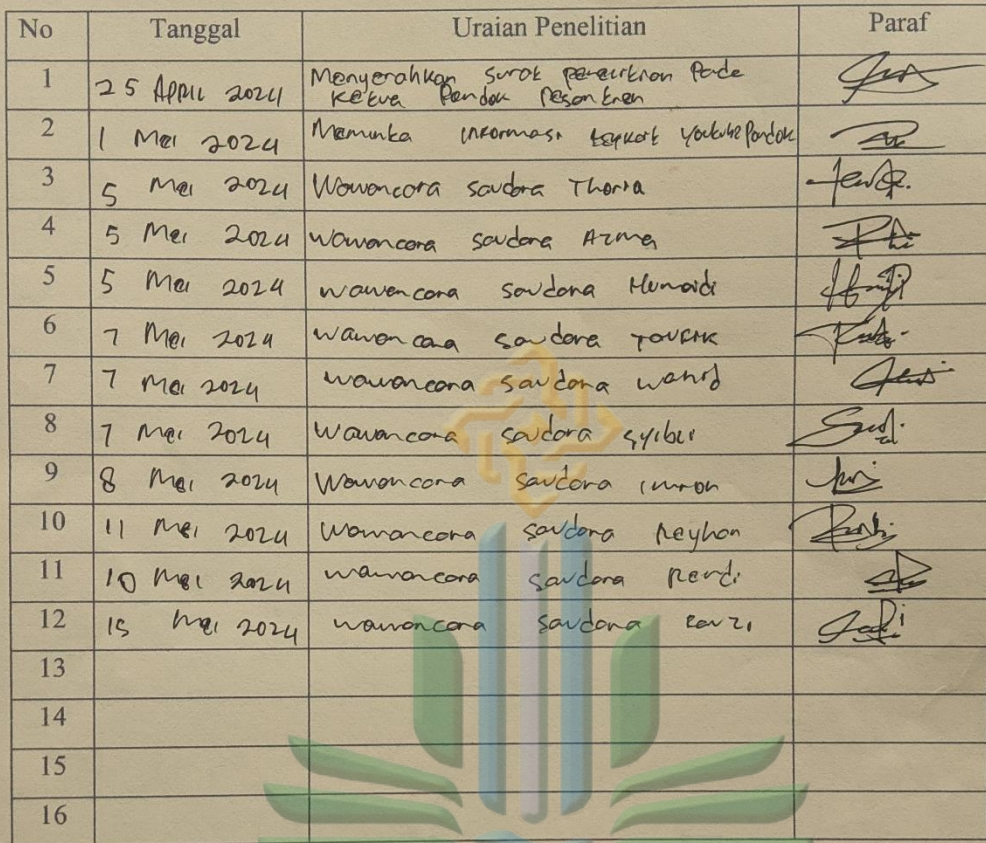 No Tanggal Uraian Penelitian Paraf
1 25 April 2024 Menyerahkan surat penelitian Pada
Ketua Pondok Pesantren
2 1 Mei 2024 Meminta informasi terkait youtube Pondok
3 5 Mei 2024 Wawancara saudara Thoria
4 5 Mei 2024 Wawancara saudara Azma
5 5 Mei 2024 wawancara saudara Humaidi
6 7 Mei 2024 wawancara saudara Toufik
7 7 Mei 2024 wawancara saudara wahid
8 7 Mei 2024 Wawancara saudara Syibli
9 8 Mei 2024 Wawancara saudara imron
10 11 Mei 2024 Wawancara saudara Reyhan
11 10 Mei 2024 wawancara saudara Rendi
12 15 Mei 2024 wawancara saudara
13
14
15
16